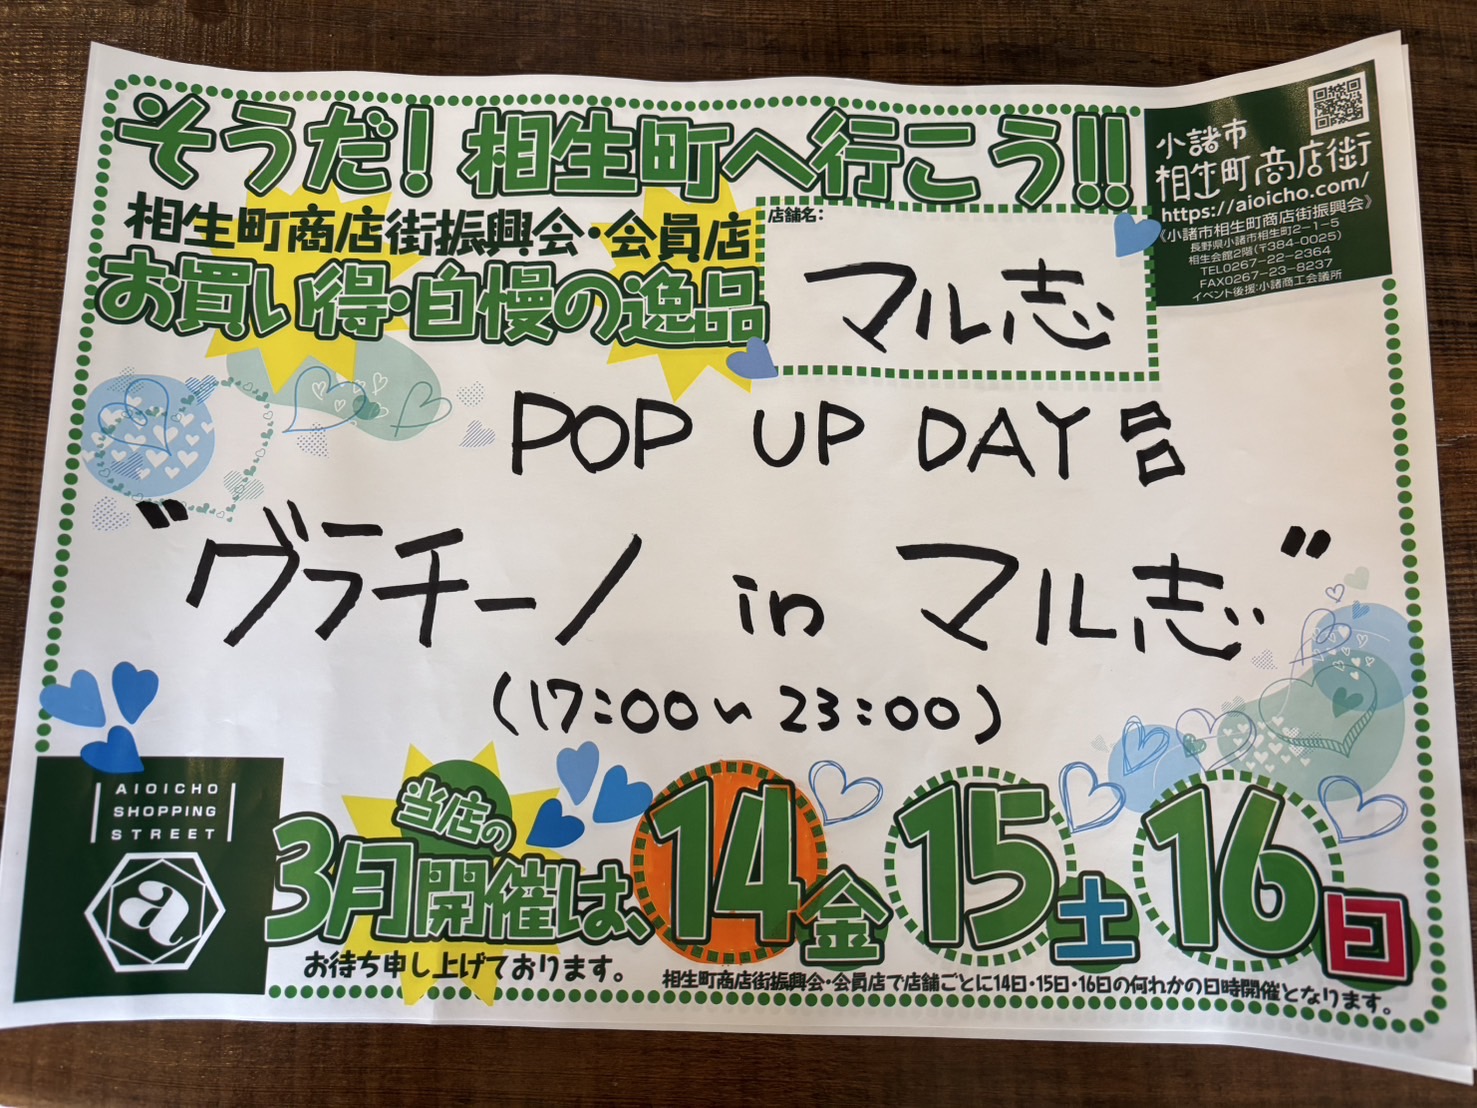 そうだ!相生町へ行こう!!
相生町商店街振興会・会員店
お買い得・自慢の逸品
店舗名:
マル志
小諸市
相生町商店街
https://aioicho.com/
《小諸市相生町商店街振興会》
長野県小諸市相生町2-1-5
相生会館2階(〒384-0025)
TEL0267-22-2364
FAX0267-23-8237
イベント後援:小諸商工会議所
POP UP DAY
"ヴラチーノ in マル志"
(17:00~23:00)
AIOICHO
SHOPPING
STREET
a
当店の
3月開催は、14金 15土 16日
お待ち申し上げております。
相生町商店街振興会・会員店で店舗ごとに14日・15日・16日の何れかの日時開催となります。